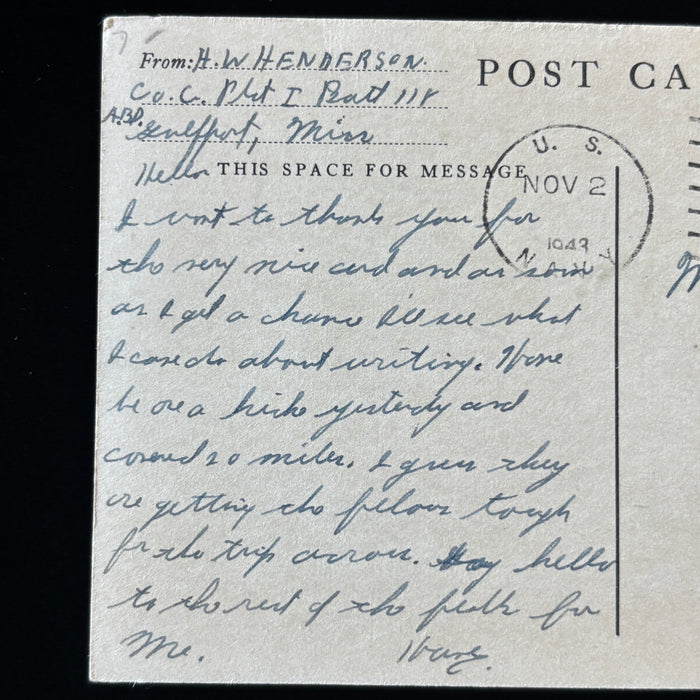 From: H. W HENDERSON.
POST CA
Co. C. Plt I Batt 118
A.B.D.
Gulfport, Miss
Hello THIS SPACE FOR MESSAGE
U. S.
NOV 2
1943
NAVY
I want to thank you for
the very nice card and as soon
as I get a chance I'll see what
I can do about writing.
be on a hike yesterdy and
covered 20 miles. I guess they
are getting the fellows tough
for the trip across. Say hello
to the rest of the folks for
Me.